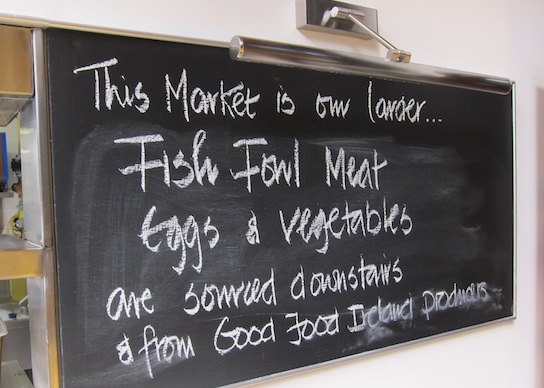 This Market is our larder...
Fish Fowl Meat
Eggs & vegetables
are sourced downstairs
& from Good Food Ireland producers